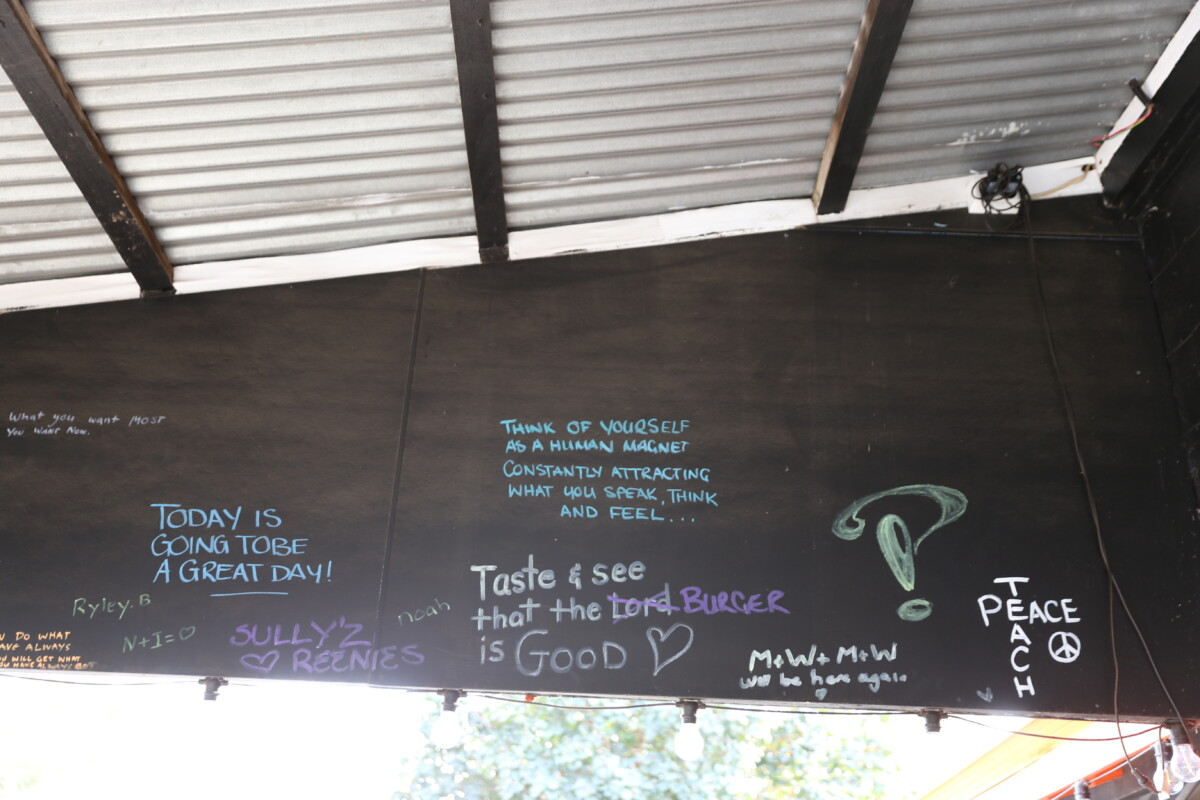 What you want MOST
YOU WANT NOW.
THINK OF YOURSELF
AS A HUMAN MAGNET
CONSTANTLY ATTRACTING
WHAT YOU SPEAK, THINK
AND FEEL...
TODAY IS
GOING TO BE
A GREAT DAY!
Ryley.B
N+I=♡
DO WHAT
AVE ALWAYS
YOU WILL GET WHAT
YOU HAVE ALWAYS GOT
SULLY'Z
♡ REENIES
noah
Taste & see
that the Lord BURGER
is GOOD ♡
M+W+M+W
will be here again
♡
?
TEACH
PEACE